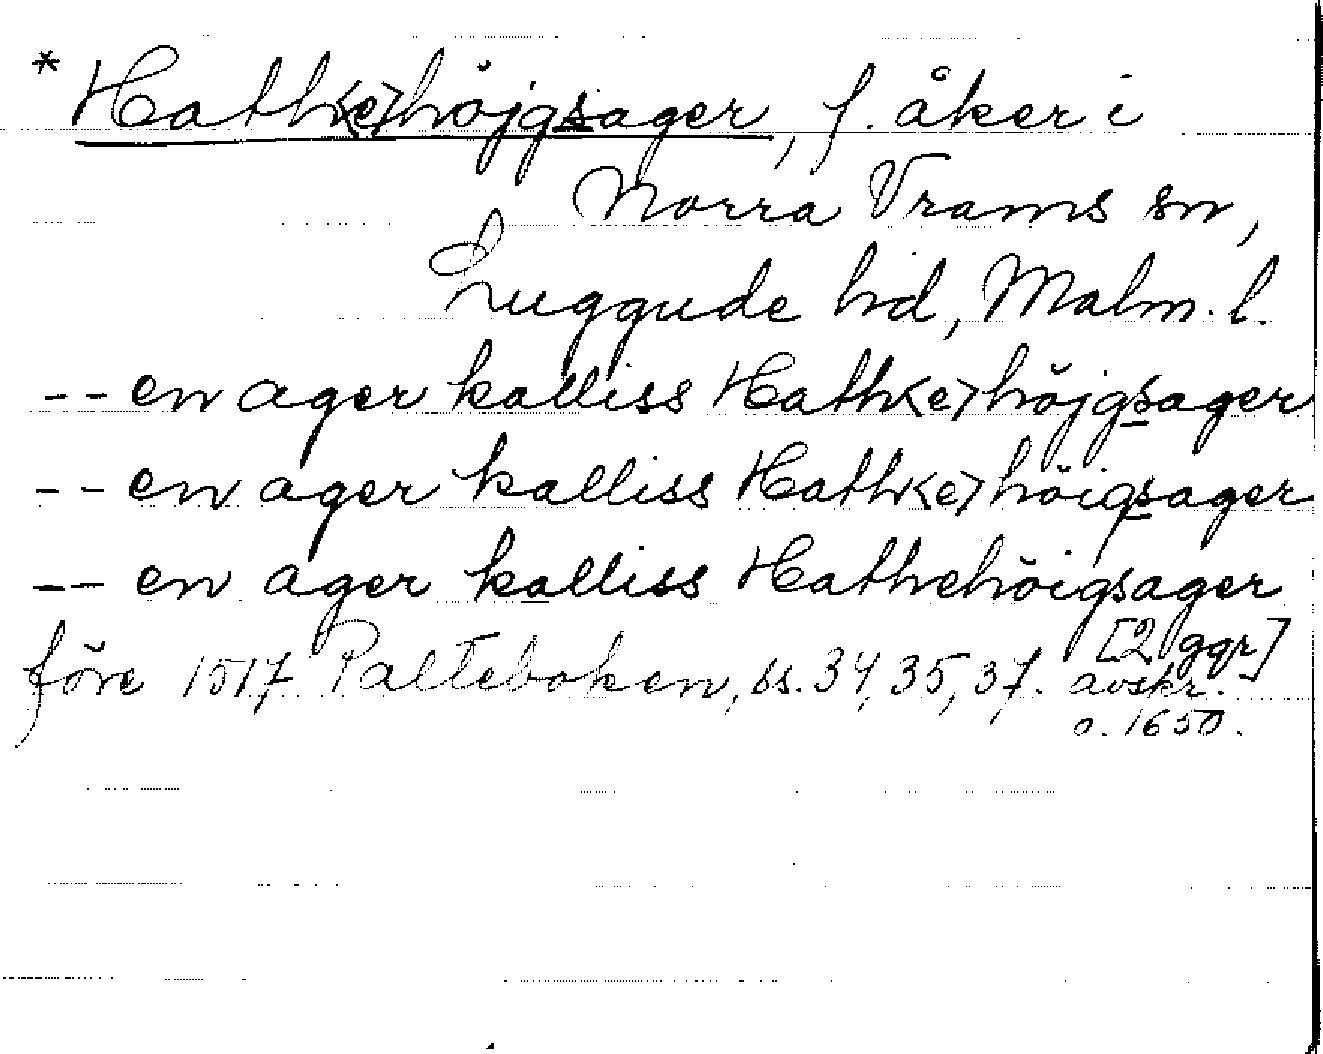 * Hath<e>höjgsager, f. åker i
Norra Vrams sn,
Luggude hd, Malm. l.
-- en ager kalliss Hath<e>höjgsager
-- en ager kalliss Hath<e>höigsager
-- en ager kalliss Hathehöigsager
[2 ggr]
före 1517 Palteboken, ss. 34, 35, 37. avskr.
o. 1650.